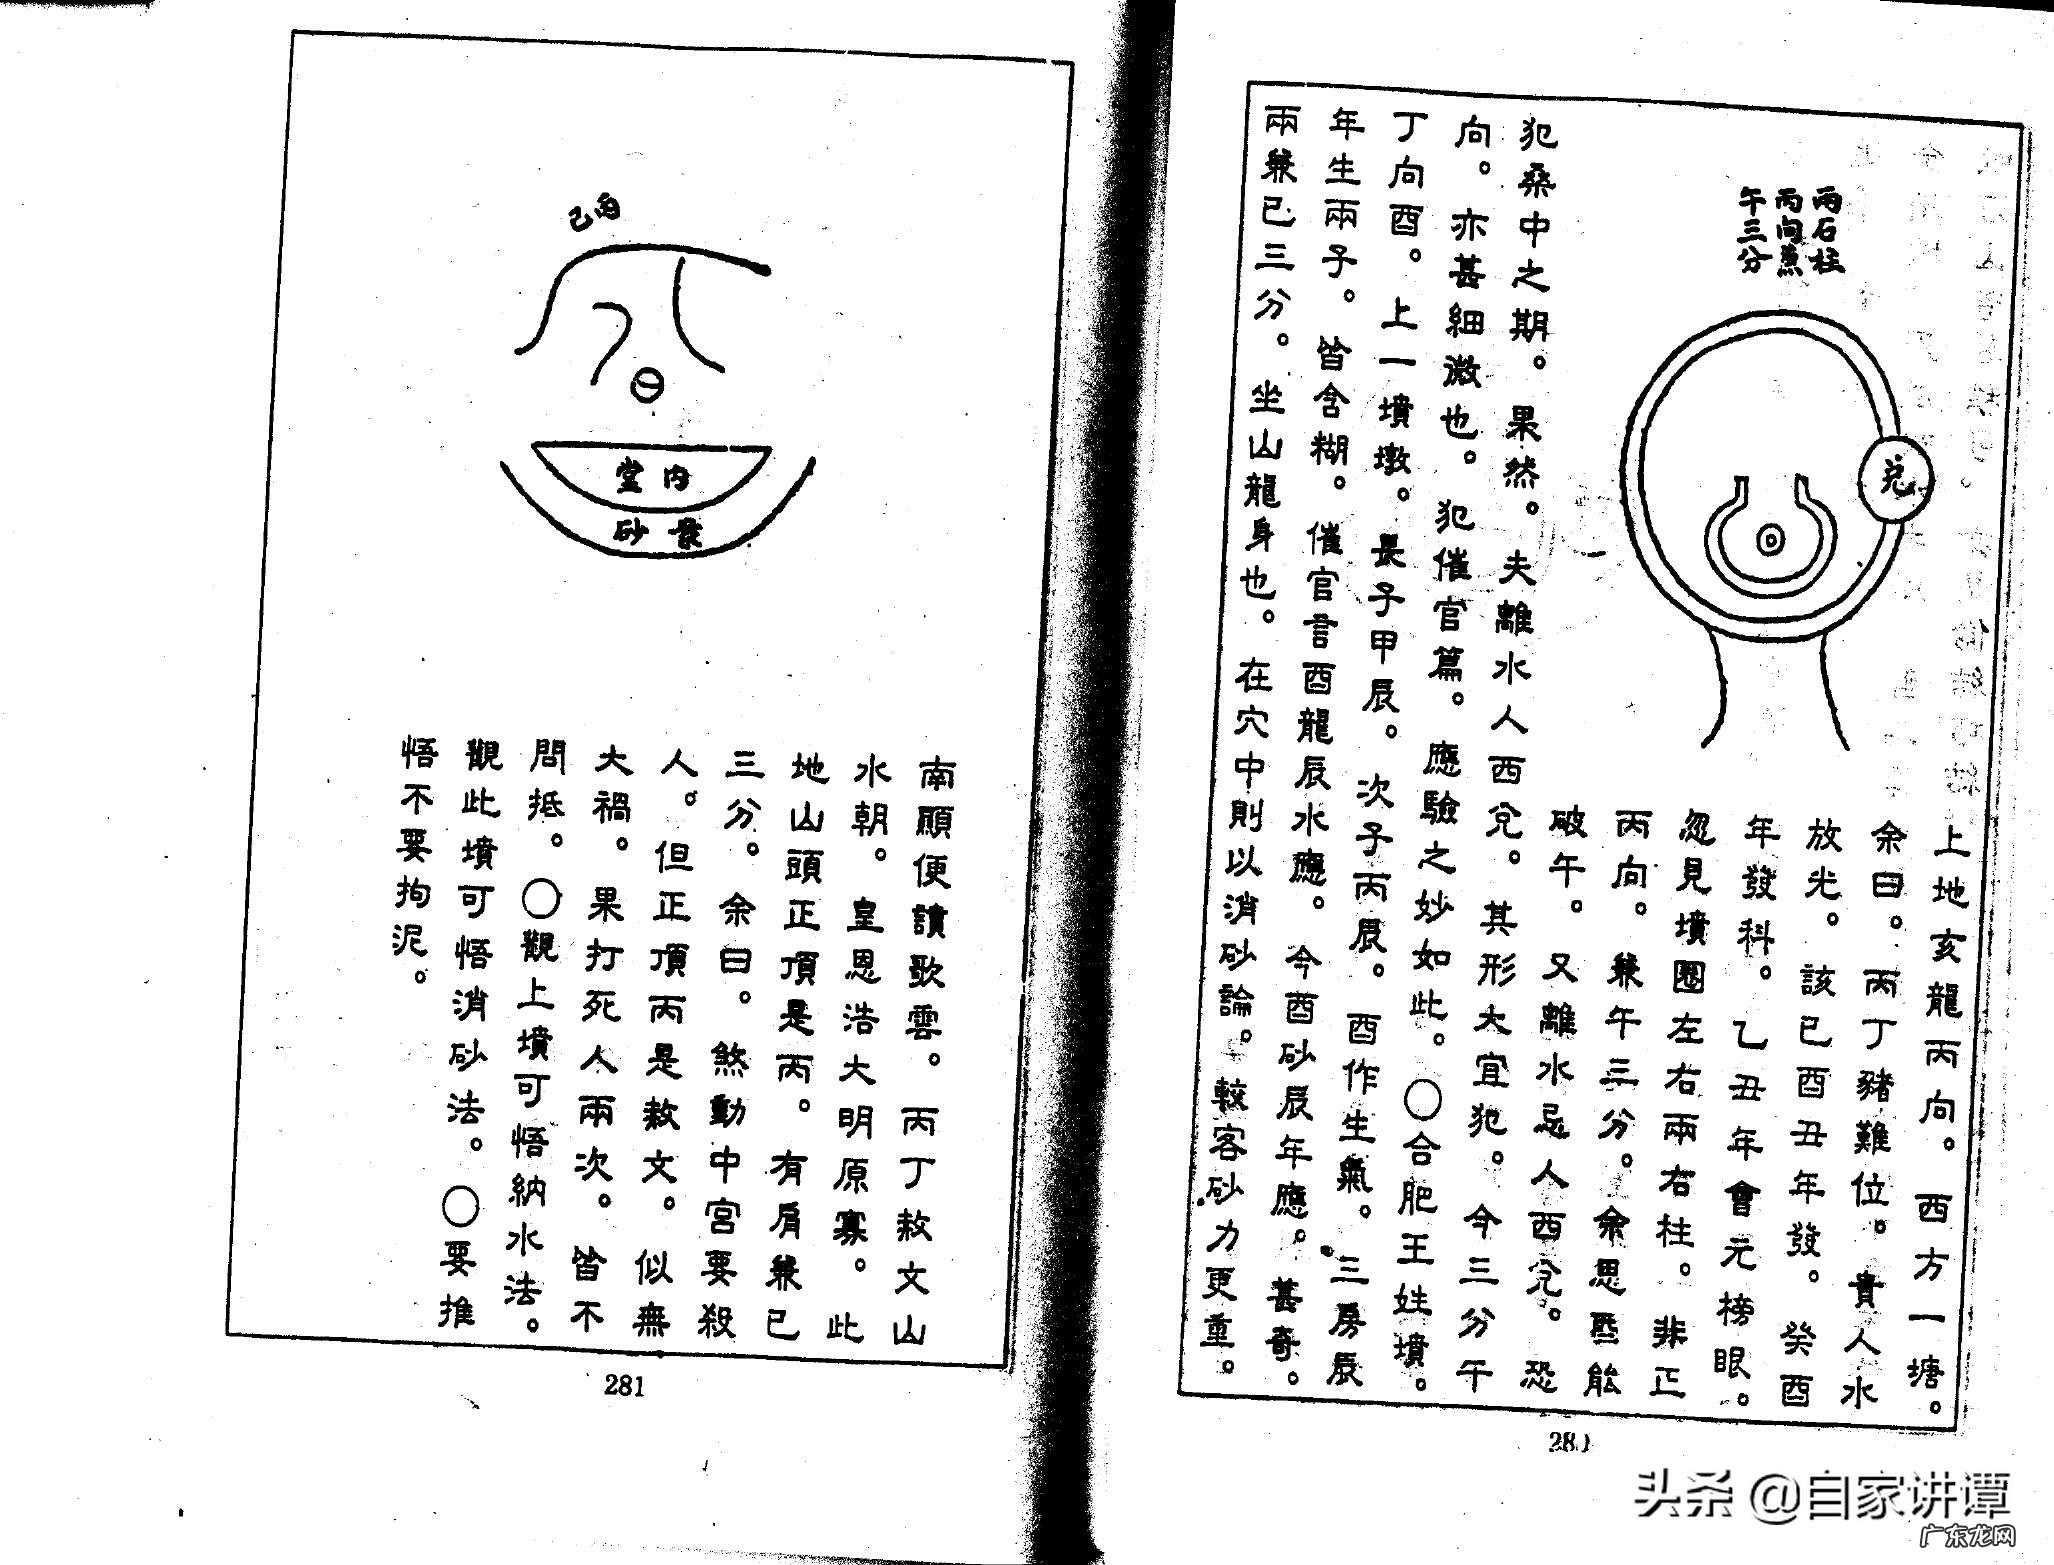 兩石柱
丙向兼
午三分
兌
上地亥龍丙向。西方一塘。
余曰。丙丁豬難位。貴人水
放光。該巳酉丑年發。癸酉
年發科。乙丑年會元榜眼。
忽見墳圈左右兩右柱。非正
丙向。兼午三分。余思旣能
破午。又離水忌人酉兌。恐
犯桑中之期。果然。夫離水人西兌。其形大宜犯。今三分午
向。亦甚細微也。犯催官篇。應驗之妙如此。〇合肥王姓墳。
丁向酉。上一墳墩。長子甲辰。次子丙辰。酉作生氣。三房辰
年生兩子。皆含糊。催官言酉龍辰水應。今酉砂辰年應。甚奇。
兩兼巳三分。坐山龍身也。在穴中則以消砂論。較客砂力更重。
280
丙
巳
內堂
砂
南顧便讀歌雲。丙丁赦文山
水朝。皇恩浩大明原寡。此
地山頭正頂是丙。有肩兼巳
三分。余曰。煞動中宮要殺
人。但正頂丙是赦文。似無
大禍。果打死人兩次。皆不
問抵。〇觀上墳可悟納水法。
觀此墳可悟消砂法。〇要推
悟不要拘泥。
281
头条 @自家讲谭
广东龙网